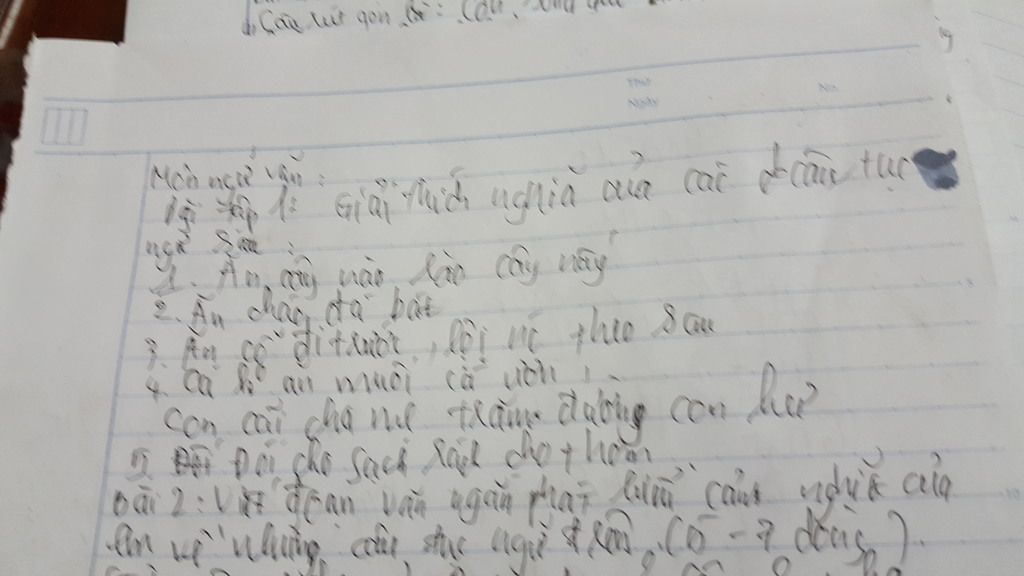 Câu rút gọn
Thứ
Ngày
No.
Môn ngữ văn:
tập 1: Giải thích nghĩa của các câu tục
ngữ sau:
1. Ăn cây nào rào cây nấy
2. Ăn cháo, đá bát
3. Ăn cỗ đi trước, lội nc theo sau
4. Cá ko ăn muối cá ươn,
con cãi cha mẹ trăm đường con hư
5. Đói cho sạch rách cho thơm
Bài 2: Viết đoạn văn ngắn phát biểu cảm nghĩ của
em về những câu tục ngữ trên. (5-7 dòng).